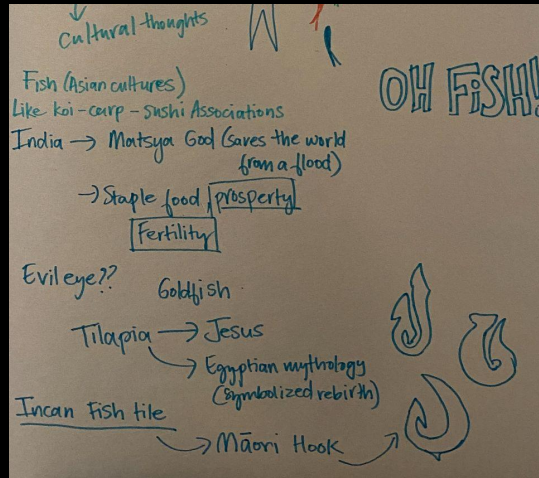 cultural thoughts
OH FiSH!
Fish (Asian cultures)
Like koi-carp - sushi Associations
India → Matsya God (saves the world
from a flood)
→ Staple food, prosperty
Fertility
Evil eye??
Goldfish
Tilapia → Jesus
→ Egyptian mythology
(symbolized rebirth)
Incan Fish tile
→ Māori Hook →